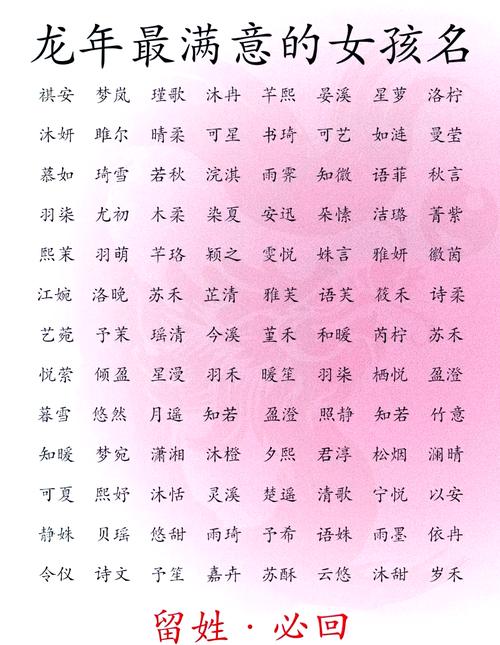 龙年最满意的女孩名
祺安 梦岚 瑾歌 沐冉 芊熙 晏溪 星萝 洛柠
沐妍 雎尔 晴柔 可星 书琦 可艺 如涟 曼莹
慕如 琦雪 若秋 浣淇 雨霁 知微 语菲 秋言
羽柒 尤初 木柔 染夏 安迅 朵愫 洁璐 菁紫
熙茉 羽萌 芊珞 颖之 雯悦 姝言 雅妍 徽茵
江婉 洛晚 苏禾 芷清 雅芙 语芙 筱禾 诗柔
艺菀 予茉 瑶清 今溪 堇禾 和暖 芮柠 苏禾
悦萦 倾盈 星漫 羽禾 暖笙 羽柒 栖悦 盈澄
暮雪 悠然 月遥 知若 盈澄 照静 知若 竹意
知暖 梦宛 潇湘 沐橙 夕熙 君淳 松烟 澜晴
可夏 熙妤 沐恬 灵溪 楚遥 清歌 宁悦 以安
静姝 贝瑶 悠甜 雨琦 予希 语姝 雨墨 依冉
令仪 诗文 予笙 嘉卉 苏酥 云悠 沐甜 岁禾
留姓·必回